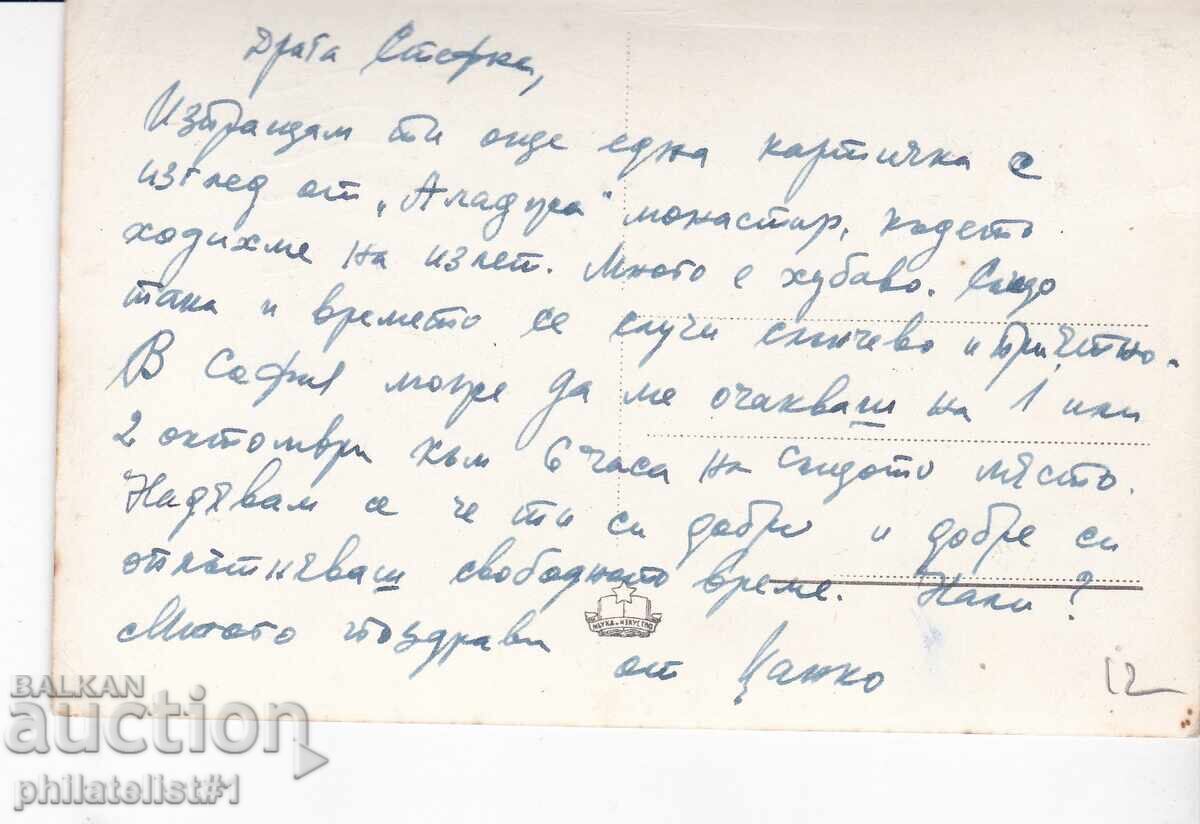 Драга Стефка,
Изпращам ти още една картичка с
изглед от „Аладжа" монастир, където
ходихме на излет. Много е хубаво. Също
така и времето се случи слънчево и приетно.
В София може да ме очакваш на 1 или
2 октомври към 6 часа на същото место.
Надевам се че ти си добре и добре си
свободното време. Нали?
Много поздрави
от Цанко
НАУКА И ИЗКУСТВО
12
BALKAN
auction
philatelist#1